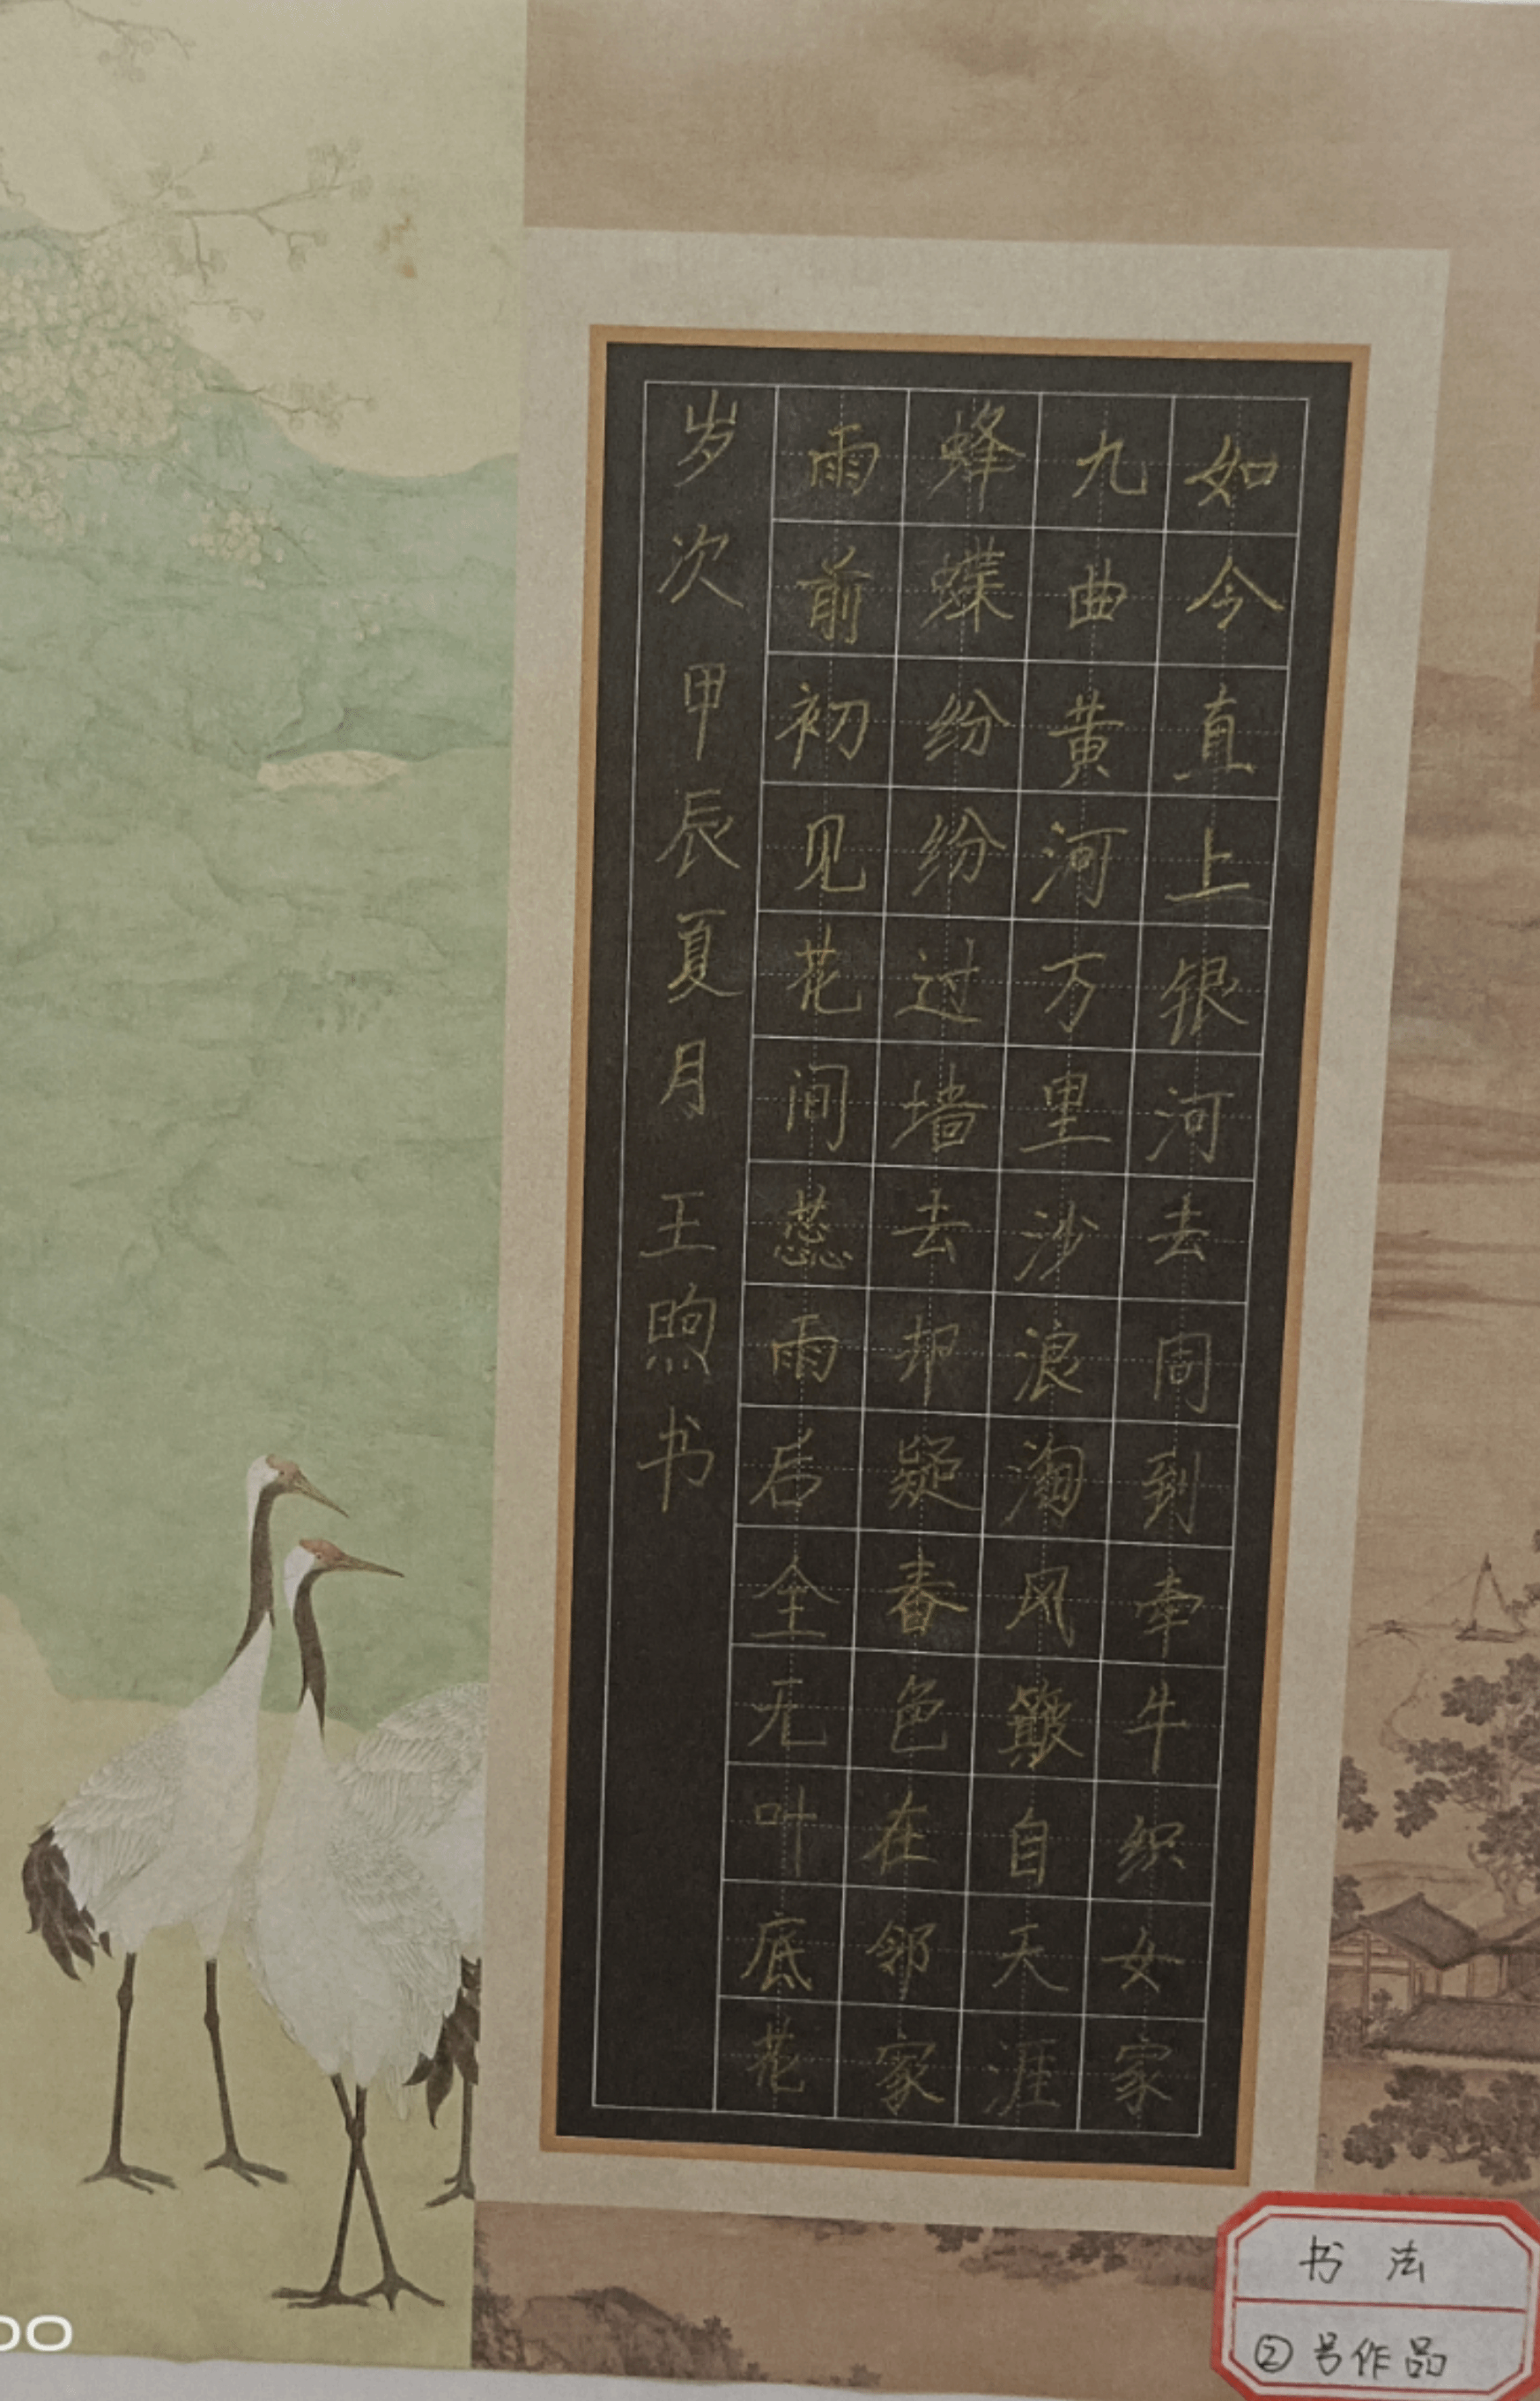 如今直上银河去同到牵牛织女家
九曲黄河万里沙浪淘风簸自天涯
蜂蝶纷纷过墙去却疑春色在邻家
雨前初见花间蕊雨后全无叶底花
岁次甲辰夏月 王煦书
书法
②号作品